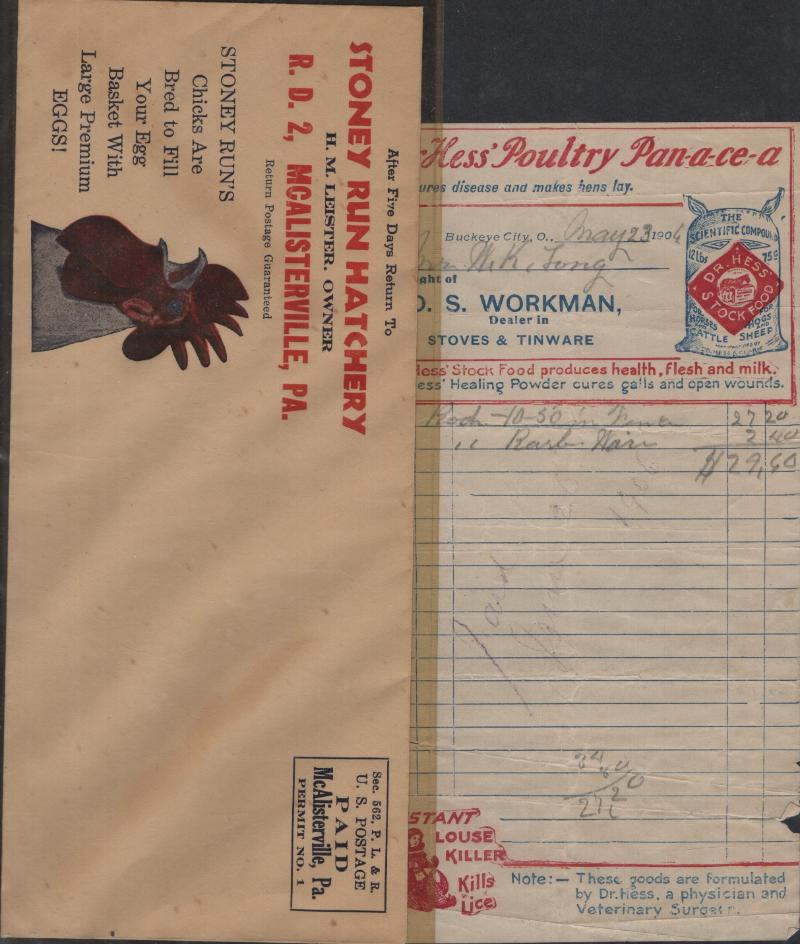 After Five Days Return To
STONEY RUN HATCHERY
H. M. LEISTER, OWNER
R. D. 2, MCALISTERVILLE, PA.
Return Postage Guaranteed
STONEY RUN'S
Chicks Are
Bred to Fill
Your Egg
Basket With
Large Premium
EGGS!
Sec. 562, P. L. & R.
U. S. POSTAGE
PAID
McAlisterville, Pa.
PERMIT NO. 1
Hess' Poultry Pan-a-ce-a
ures disease and makes hens lay.
Buckeye City, O., May 23 1904
ght of
O. S. WORKMAN,
Dealer in
STOVES & TINWARE
THE
SCIENTIFIC COMPOUND
12 lbs 75¢
DR. HESS'
STOCK FOOD
FOR HORSES
FOR HOGS AND
CATTLE SHEEP
Hess' Stock Food produces health, flesh and milk.
ess' Healing Powder cures galls and open wounds.
27 20
" Barb 2 40
$29,60
STANT
LOUSE
KILLER
Kills
Lice
Note:— These goods are formulated
by Dr. Hess, a physician and
Veterinary Surgeon.